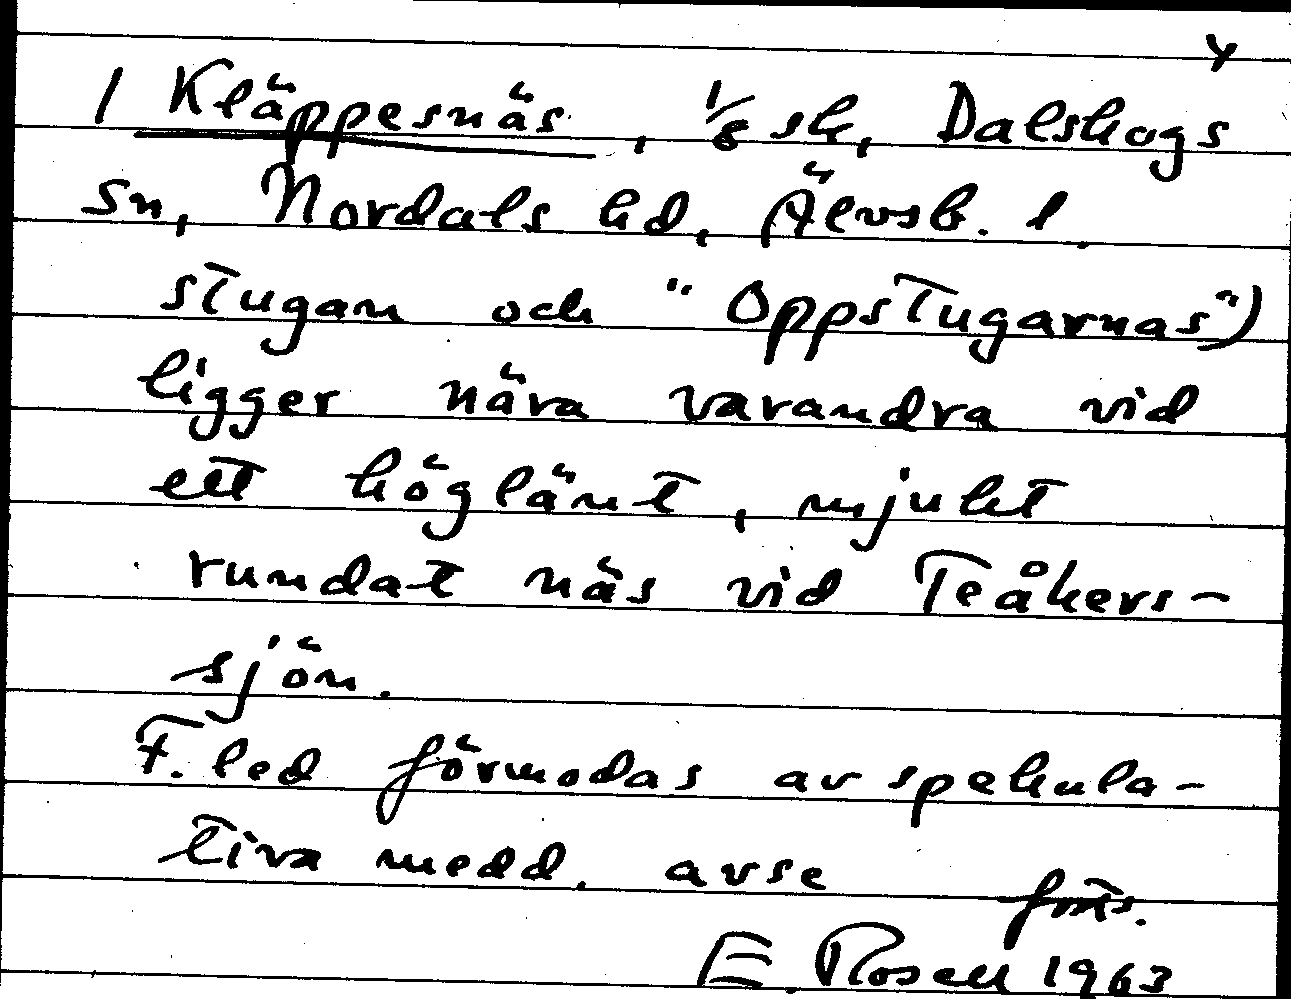 4
1 Kläppesnäs, 1/8 sk, Dalskogs
sn, Nordals hd, Älvsb. l.
stugan och "Oppstugarnas")
ligger nära varandra vid
ett höglänt, mjukt
rundat näs vid Teåkers-
sjön.
F. led förmodas av spekula-
tiva medd. avse forts.
E. Rosell 1963